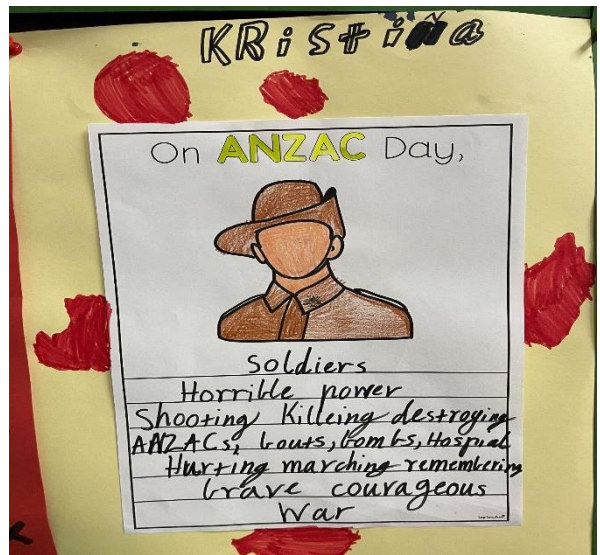 KRiStiña
On ANZAC Day,
Soldiers
Horrible power
Shooting Killeing destroying
ANZACs, bouts, bombs, Hospial
Hurting marching remembering
brave courageous
War